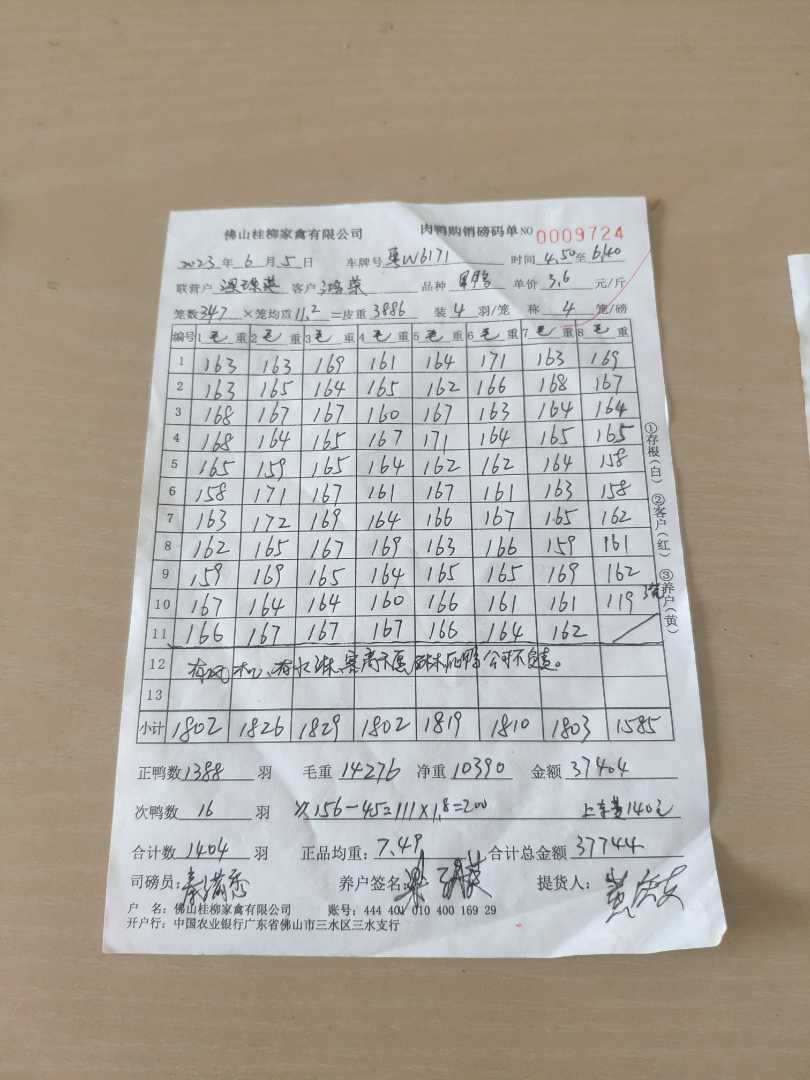 佛山桂柳家禽有限公司 肉鸭购销磅码单 NO 0009724
2023 年 6 月 5 日 车牌号 粤W6171 时间 4.50 至 6.40
联营户 客户 鸿荣 品种 单价 3.6 元/斤
笼数 347 ×笼均重 11.2 =皮重 3886 装 4 羽/笼 称 4 笼/磅
编号 1 毛 重 2 毛 重 3 毛 重 4 毛 重 5 毛 重 6 毛 重 7 毛 重 8 毛 重
1 163 163 169 161 164 171 163 169
2 163 165 164 165 162 166 168 167
3 168 167 167 160 167 163 164 164
4 168 164 165 167 171 164 165 165
5 165 159 165 164 162 162 164 158
6 158 171 167 161 167 161 163 158
7 163 172 169 164 166 167 165 162
8 162 165 167 169 163 166 159 161
9 159 169 165 164 165 165 169 162
10 167 164 164 160 166 161 161 119
11 166 167 167 167 166 164 162
12 有风机、有水淋,客户不愿淋水死鸭公司不负责。
13
小计 1802 1826 1829 1802 1819 1810 1803 1585
①存根(白) ②客户(红) ③养户(黄)
正鸭数 1388 羽 毛重 14276 净重 10390 金额 37404
次鸭数 16 羽 次156-45=111×1.8=200 上车费140元
合计数 1404 羽 正品均重: 7.49 合计总金额 37744
司磅员: 养户签名: 提货人:
户 名: 佛山桂柳家禽有限公司 账号: 444 401 010 400 169 29
开户行: 中国农业银行广东省佛山市三水区三水支行